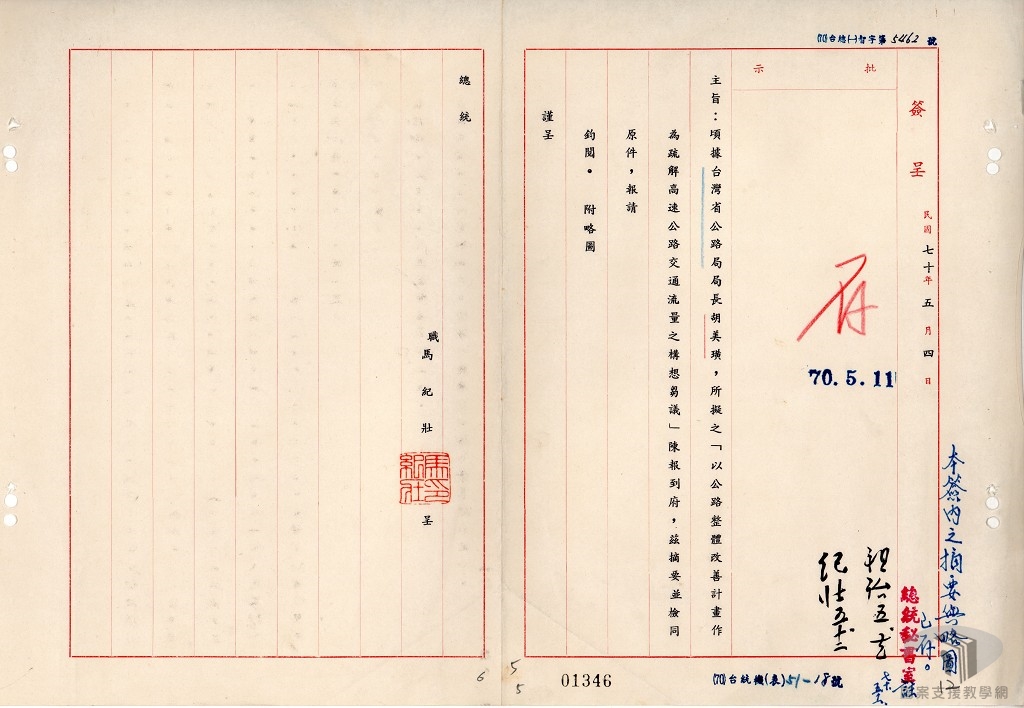 (70)台總(一)智字第5462號
簽呈
民國七十年五月四日
批示
存
70.5.11
主旨：頃據台灣省公路局局長胡美璜，所擬之「以公路整體改善計畫作
為疏解高速公路交通流量之構想芻議」陳報到府，茲摘要並檢同
原件，報請
鈞閱。　附略圖
謹呈
總統
職馬紀壯
呈
本簽內之摘要與略圖
已存。
總統秘書室
(70)台統機(表)51-18號
01346
5
5
6
檔案支援教學網